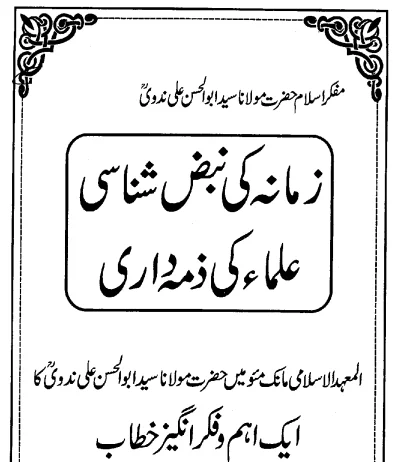 مفکر اسلام حضرت مولانا سید ابوالحسن علی ندویؒ
زمانہ کی نبض شناسی
علماء کی ذمہ داری
المعہد الاسلامی مانک مئو میں حضرت مولانا سید ابوالحسن علی ندویؒ کا
ایک اہم و فکر انگیز خطاب